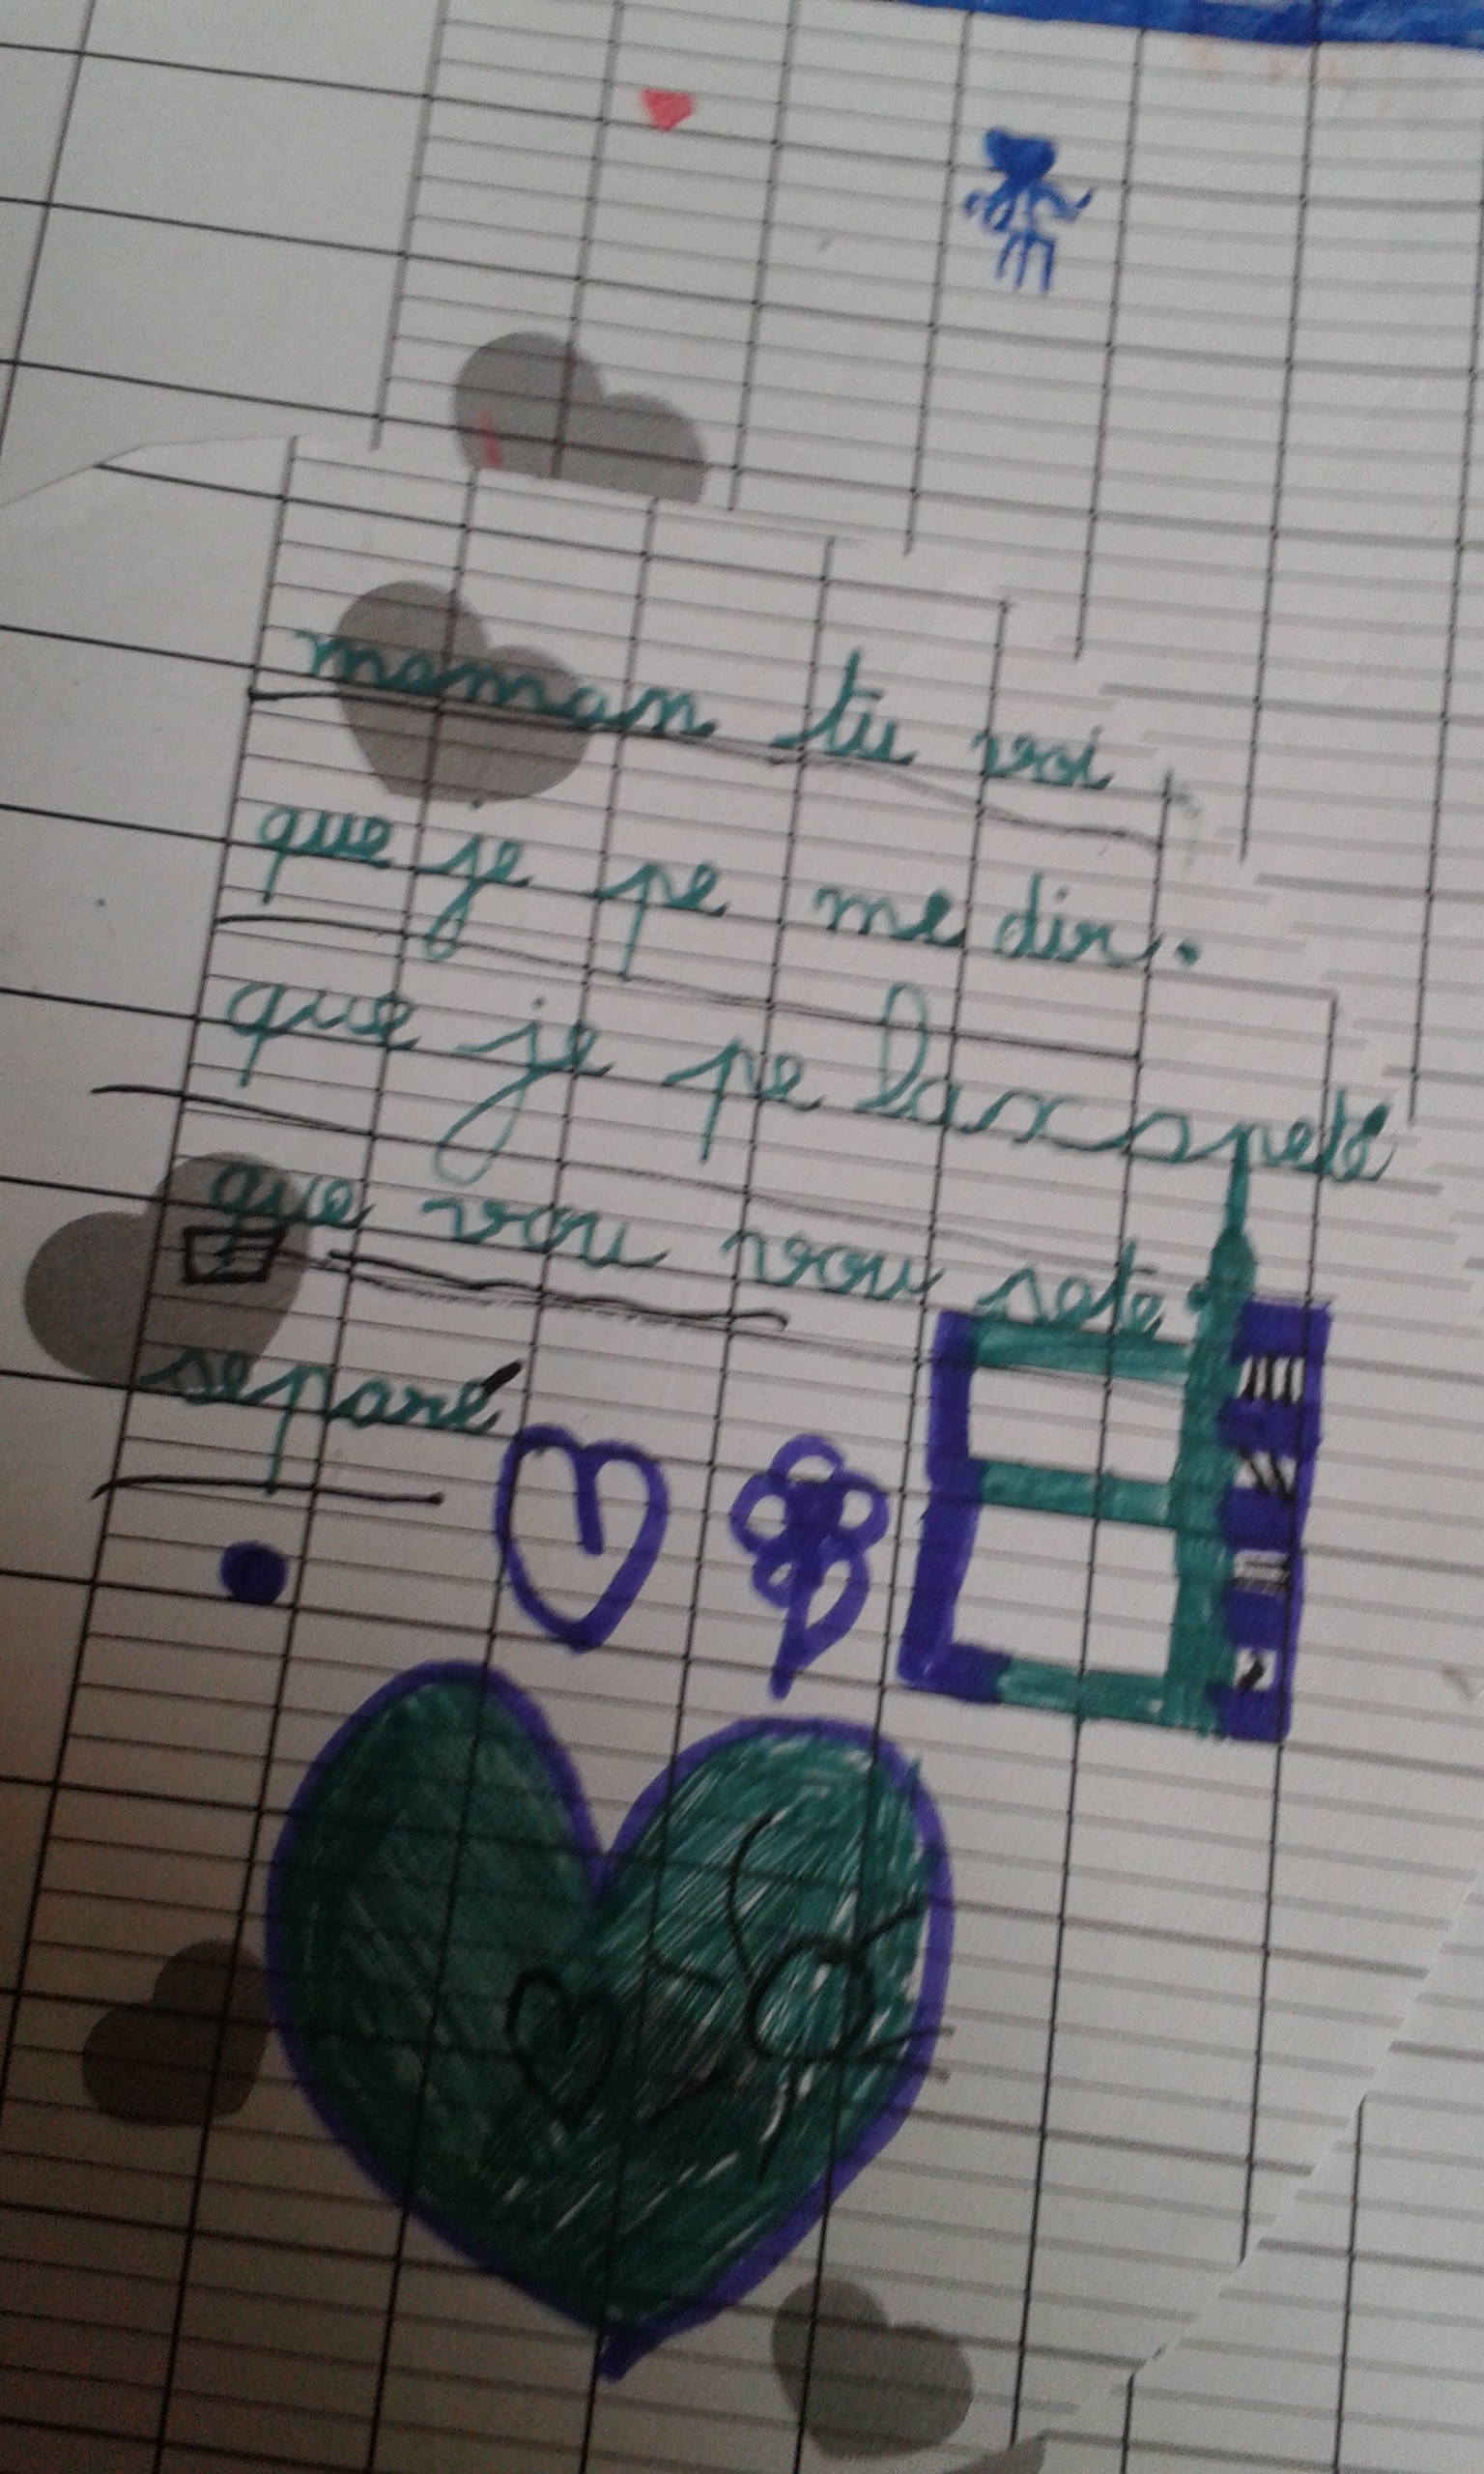 maman tu voi
que je pe me dir.
que je pe laxspeté
que vou vou sete
separé